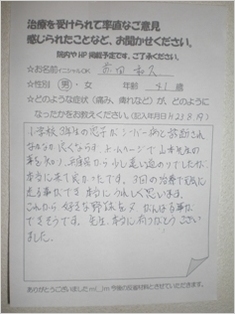 治療を受けられて率直なご意見
感じられたことなど、お聞かせください。
院内やHP掲載予定です、ご了承ください。
☆お名前 イニシャルOK
☆性別 男・女 年齢 51歳
☆どのような症状(痛み、痺れなど)が、どのように
なったかをお教えください。(記入年月日H21.8.19)
小学校3年生の息子がシーバー病と診断され
なかなか良くならず、ホームページで山本先生の
事を知り、
本当に来て良かったです。3回の治療で
る事ができ、本当にうれしく思います。
これから好きな野球を
できそうです。先生、本当に有りがとうござい
ました。
ありがとうございましたm(_)m 今後の反省材料とさせていただきます。